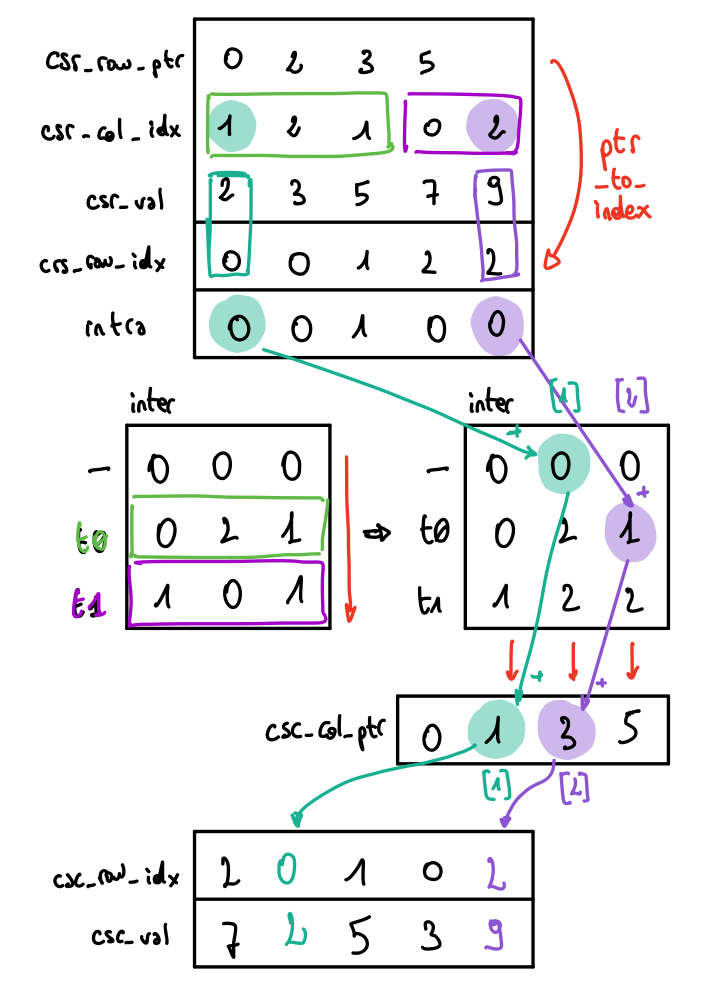 csr_row_ptr 0 2 3 5
csr_col_idx 1 2 1 0 2
ptr
_to_
index
csr_val 2 3 5 7 9
crs_row_idx 0 0 1 2 2
intra 0 0 1 0 0
inter
- 0 0 0
t0 0 2 1
t1 1 0 1
⇒
inter [1] [2]
- 0 0 0
+ +
t0 0 2 1
t1 1 2 2
+ +
csc_col_ptr 0 1 3 5
[1] [2]
csc_row_idx 2 0 1 0 2
csc_val 7 2 5 3 9